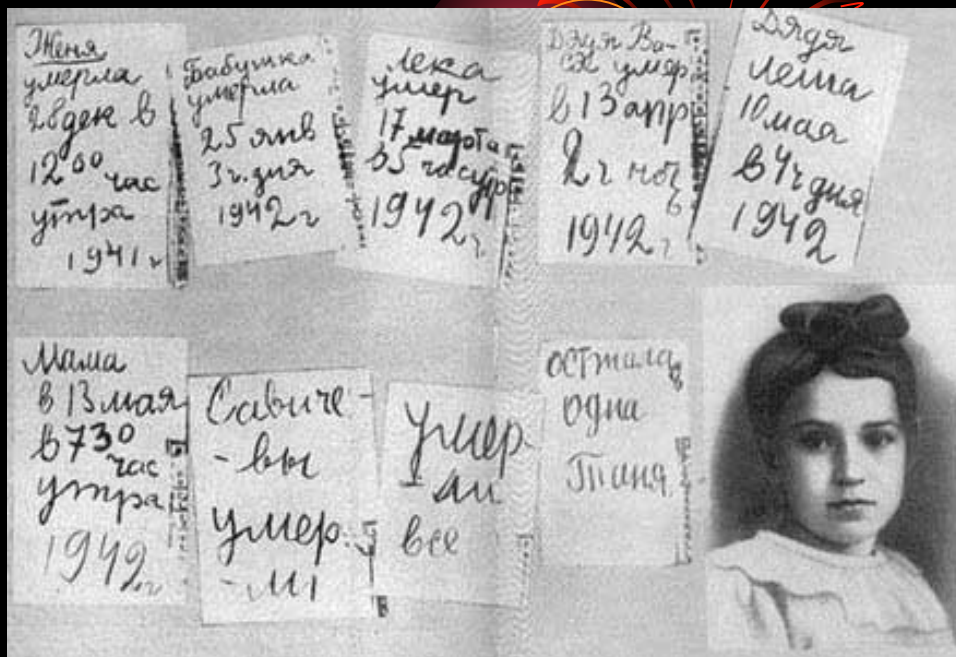 Женя
умерла
28 дек в
12 00 час
утра
1941 г
Бабушка
умерла
25 янв
3 ч. дня
1942 г
Лека
умер
17 марта
в 5 часутр
1942 г.
Дядя Ва-
ся умер
в 13 апр
2 ч ноч
1942 г
Дядя
Леша
10 мая
в 4 ч дня
1942
Мама
в 13 мая
в 7 30
час
утра
1942 г
Савиче-
-вы
умер
-ли
умер-
-ли
все
осталась
одна
Таня